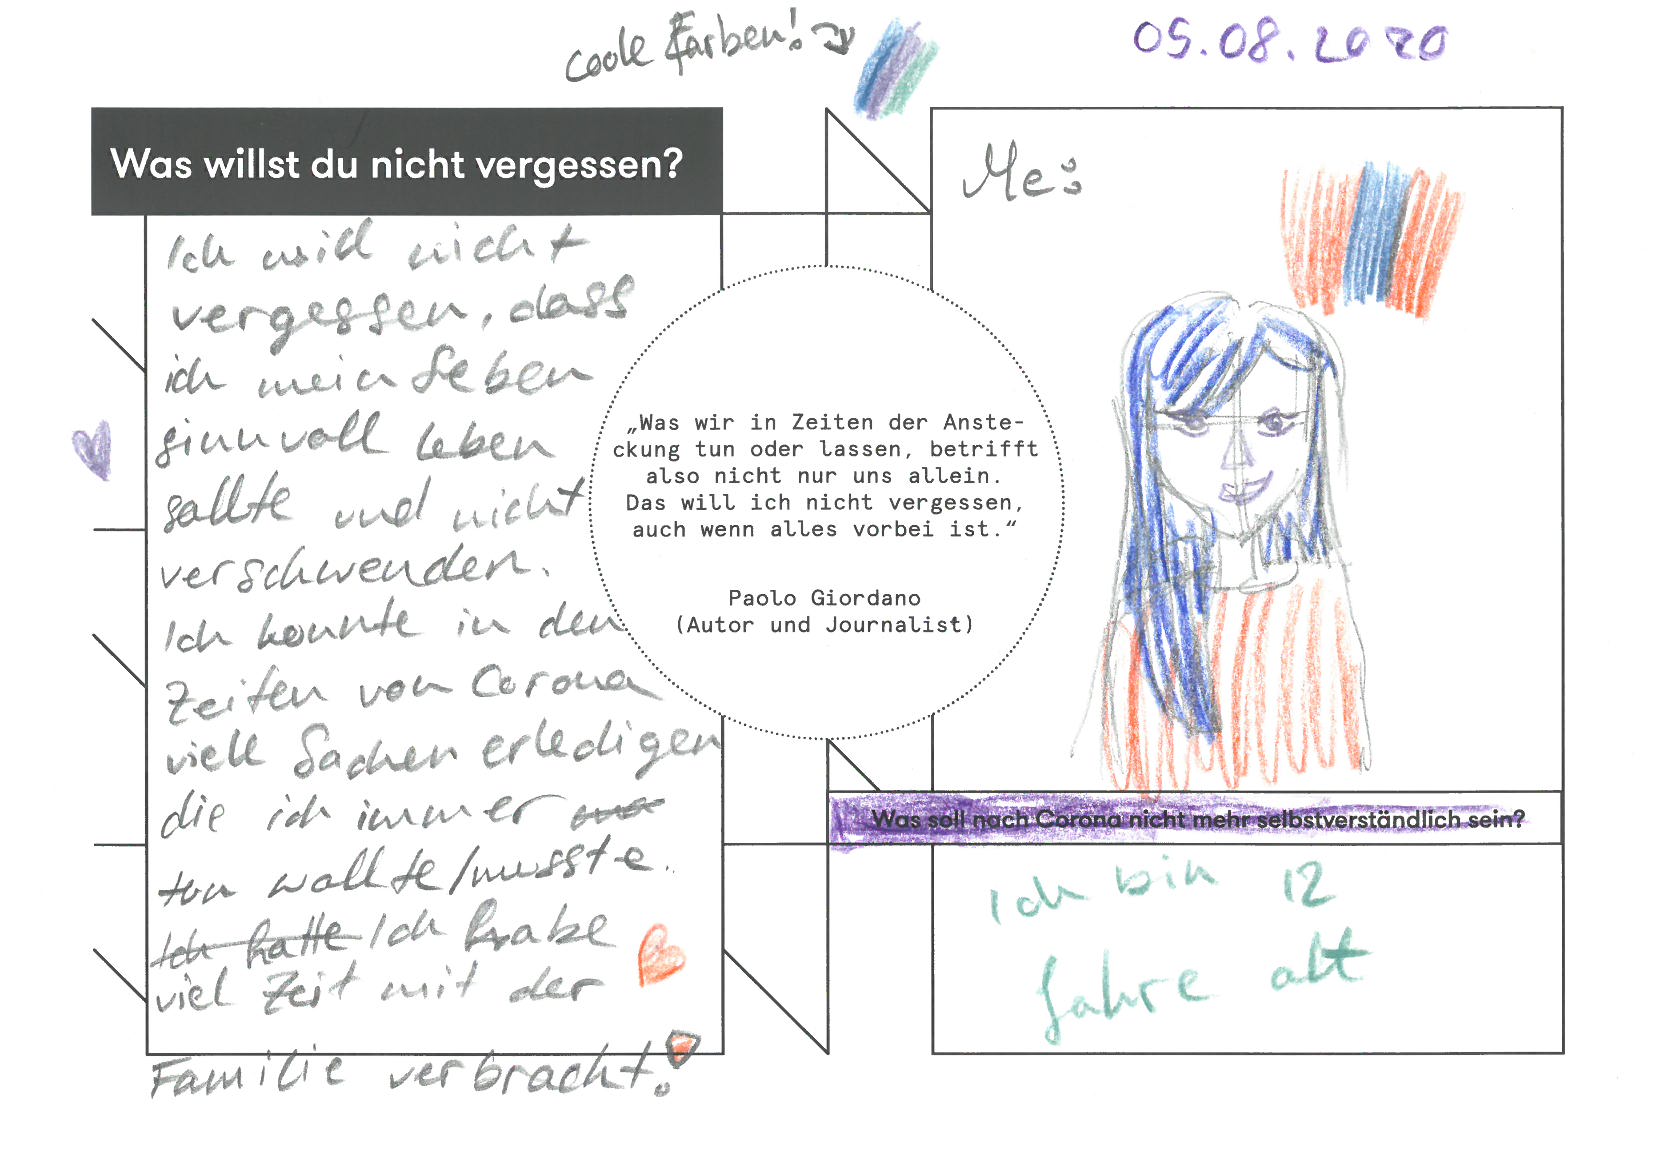 coole Farben!
05.08.2020
Was willst du nicht vergessen?
Ich will nicht
vergessen, dass
ich mein Leben
sinnvoll leben
sollte und nicht
verschwenden.
Ich konnte in den
Zeiten von Corona
viele Sachen erledigen
die ich immer
tun wollte/musste.
Ich hatte Ich habe
viel Zeit mit der
Familie verbracht!
„Was wir in Zeiten der Anste-
ckung tun oder lassen, betrifft
also nicht nur uns allein.
Das will ich nicht vergessen,
auch wenn alles vorbei ist.“
Paolo Giordano
(Autor und Journalist)
Me:
Was soll nach Corona nicht mehr selbstverständlich sein?
Ich bin 12
Jahre alt